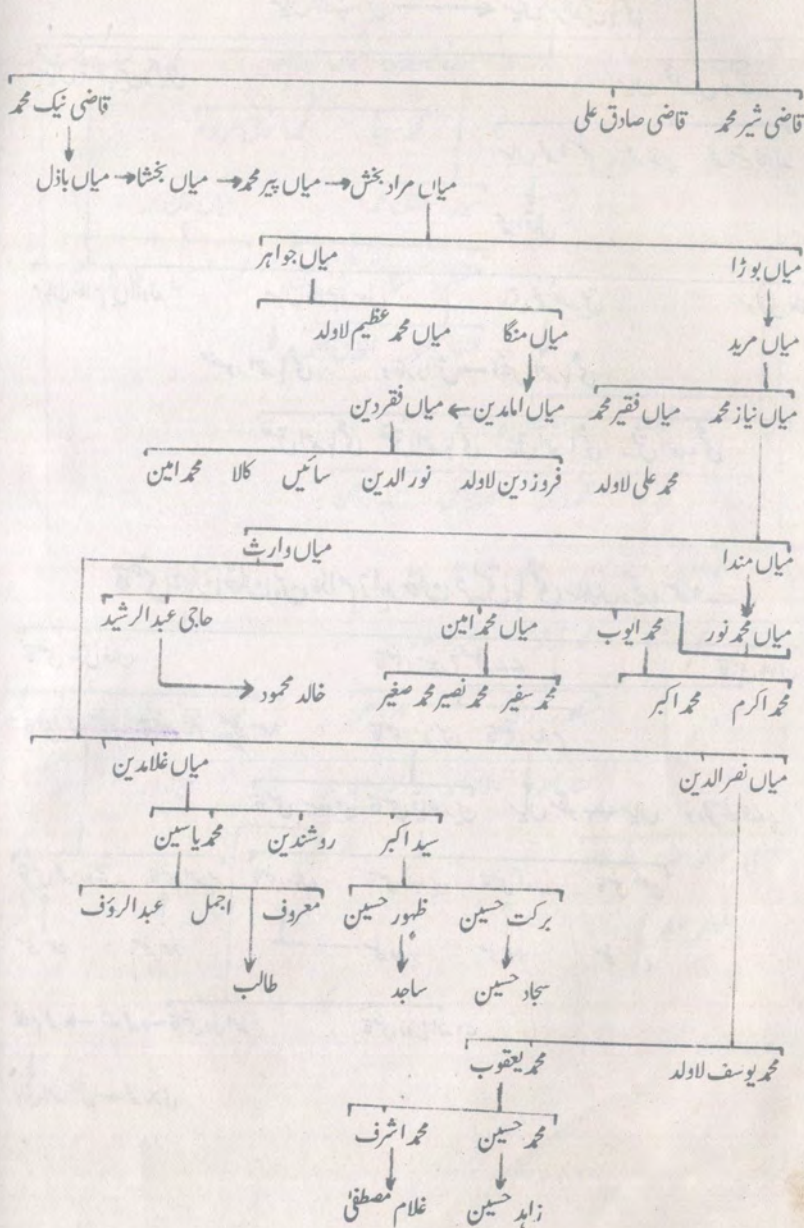 قاضی شیر محمد قاضی صادق علی قاضی نیک محمد
میاں مراد بخش → میاں پیر محمد → میاں بخشا → میاں باذل
میاں بوڑا میاں جواہر
میاں مرید میاں منگا میاں محمد عظیم لاولد
میاں نیاز محمد میاں فقیر محمد میاں امامدین ← میاں فقردین
محمد علی لاولد فروزدین لاولد نور الدین سائیں کالا محمد امین
میاں مندا میاں وارث
میاں محمد نور محمد ایوب میاں محمد امین حاجی عبد الرشید
محمد اکرم محمد اکبر محمد سفیر محمد نصیر محمد صغیر خالد محمود
میاں نصر الدین میاں غلامدین
سید اکبر روشندین محمد یاسین
برکت حسین ظہور حسین معروف اجمل عبد الرؤف
سجاد حسین ساجد طالب
محمد یوسف لاولد محمد یعقوب
محمد حسین محمد اشرف
زاہد حسین غلام مصطفیٰ